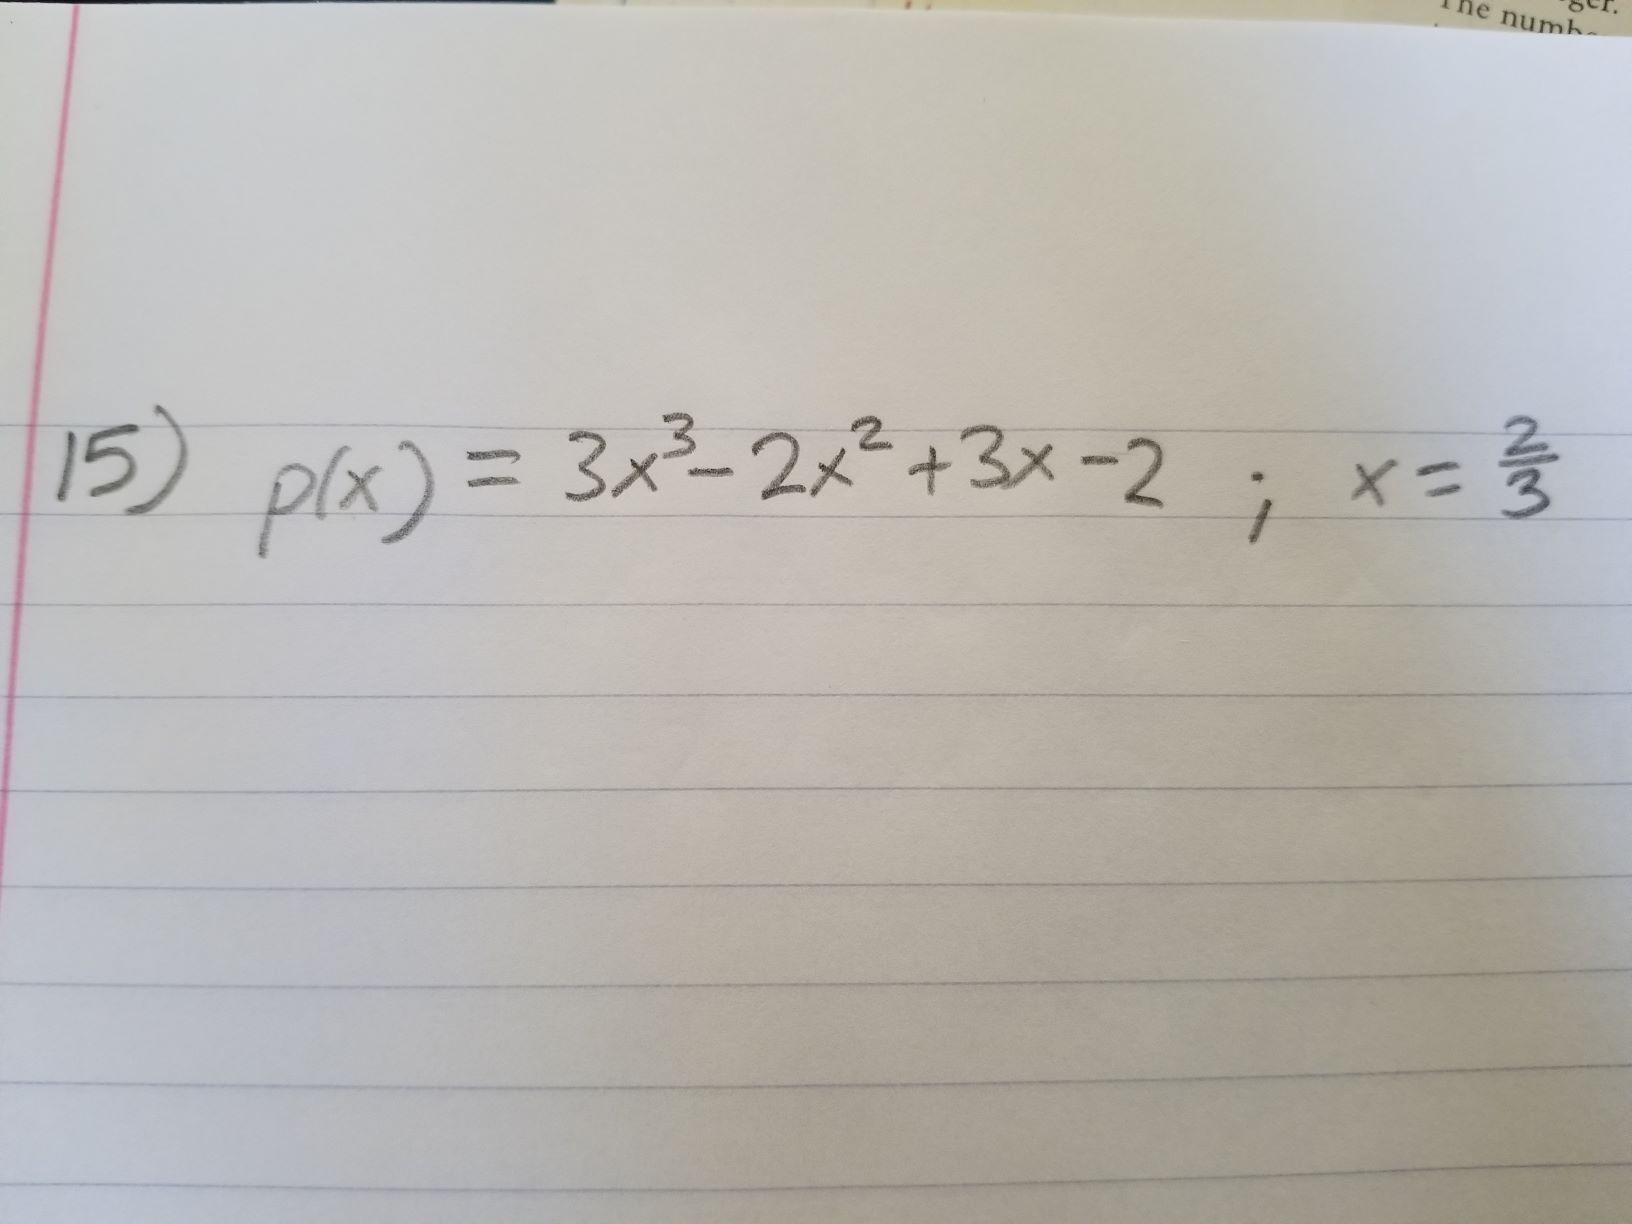 ger.
The numbe
15) p(x) = 3x³ - 2x² + 3x - 2 ; x = 2/3